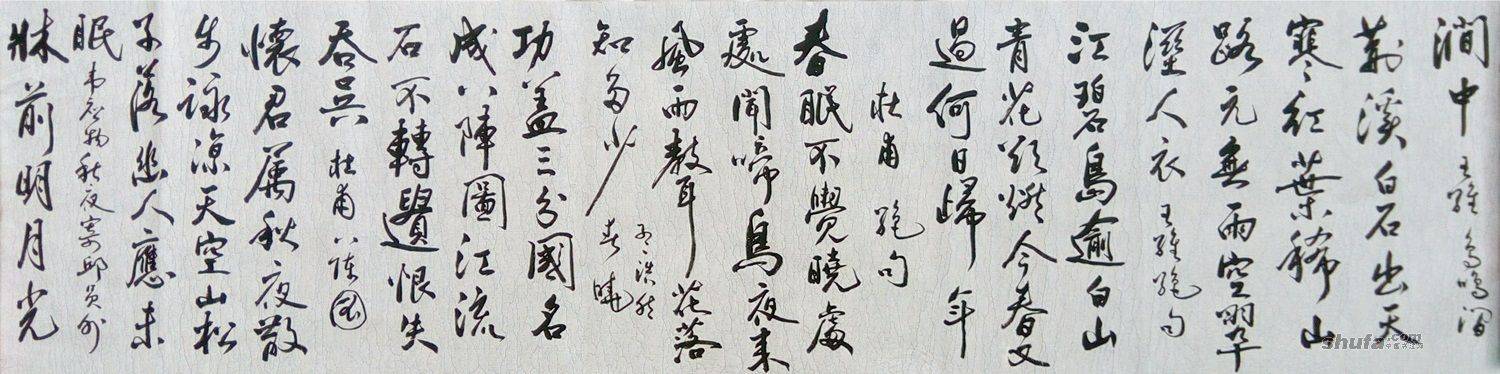 澗中 王維 鳥鳴澗
荊溪白石出天
寒紅葉稀山
路元無雨空翠
溼人衣 王維絶句
江碧鳥逾白山
青花欲燃今春又
過何日歸年
杜甫 絶句
春眠不覺曉處
處聞啼鳥夜来
風雨聲花落
知多少 孟浩然 春曉
功盖三分國名
成八陣圖江流
石不轉遺恨失
吞吴 杜甫 八陣圖
懷君屬秋夜散
步詠涼天空山松
子落幽人應未
眠 韦应物秋夜寄邱员外
牀前明月光
shufa.com